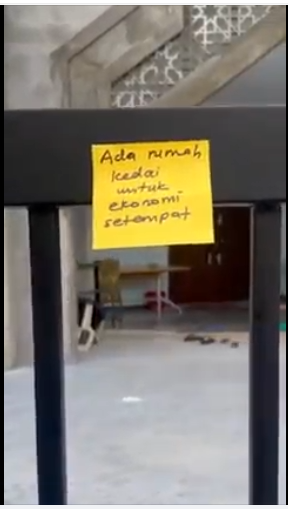 Ada rumah
kedai
untuk
ekonomi
setempat